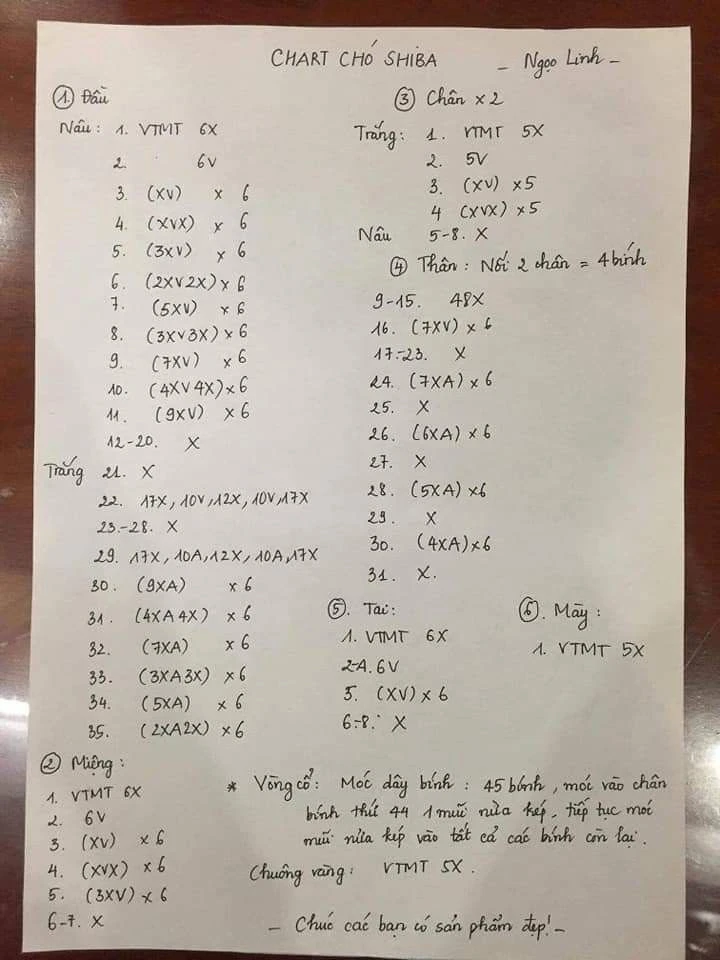 CHART CHÓ SHIBA - Ngọc Linh -
① Đầu
Nâu: 1. VTMT 6X
2. 6V
3. (XV) x 6
4. (XVX) x 6
5. (3XV) x 6
6. (2XV2X) x 6
7. (5XV) x 6
8. (3XV3X) x 6
9. (7XV) x 6
10. (4XV4X) x 6
11. (9XV) x 6
12-20. X
Trắng 21. X
22. 17X, 10V, 12X, 10V, 17X
23.-28. X
29. 17X, 10A, 12X, 10A, 17X
30. (9XA) x 6
31. (4XA4X) x 6
32. (7XA) x 6
33. (3XA3X) x 6
34. (5XA) x 6
35. (2XA2X) x 6
② Miệng:
1. VTMT 6X
2. 6V
3. (XV) x 6
4. (XVX) x 6
5. (3XV) x 6
6-7. X
③ Chân x 2
Trắng: 1. VTMT 5X
2. 5V
3. (XV) x5
4 (XVX) x5
Nâu 5-8. X
④ Thân: Nối 2 chân = 4 bính
9-15. 48X
16. (7XV) x 6
17.-23. X
24. (7XA) x 6
25. X
26. (6XA) x 6
27. X
28. (5XA) x6
29. X
30. (4XA) x 6
31. X.
⑤. Tai:
1. VTMT 6X
2-4. 6V
5. (XV) x 6
6-8. X
⑥. Mày:
1. VTMT 5X
* Vòng cổ: Móc dây bính: 45 bính, móc vào chân
bính thứ 44 1 mũi nửa kép, tiếp tục móc
mũi nửa kép vào tất cả các bính còn lại.
Chuông vàng: VTMT 5X.
- Chúc các bạn có sản phẩm đẹp! -